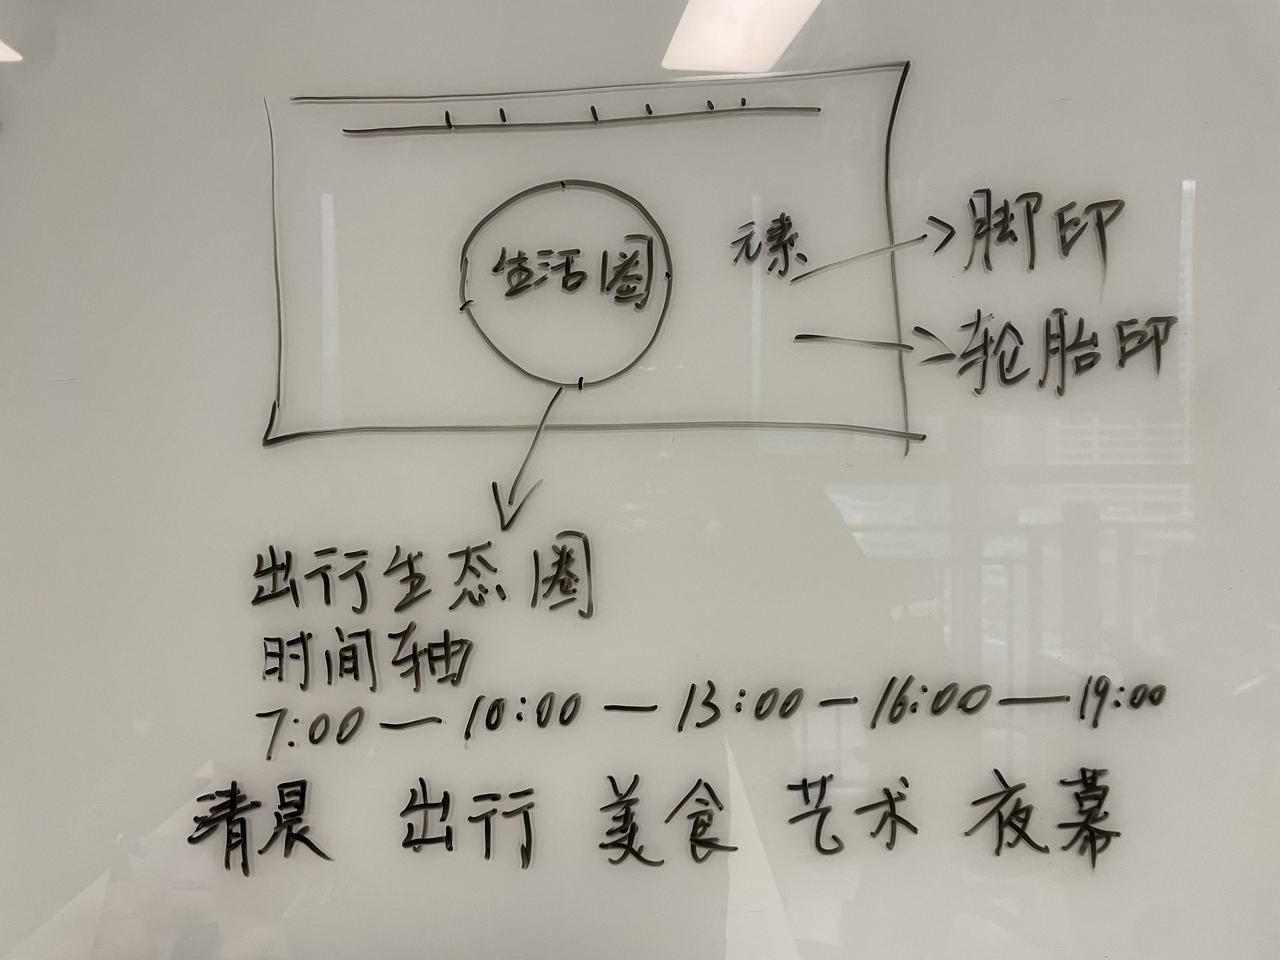 生活圈
元素
脚印
轮胎印
出行生态圈
时间轴
7:00 — 10:00 — 13:00 — 16:00 — 19:00
清晨 出行 美食 艺术 夜幕